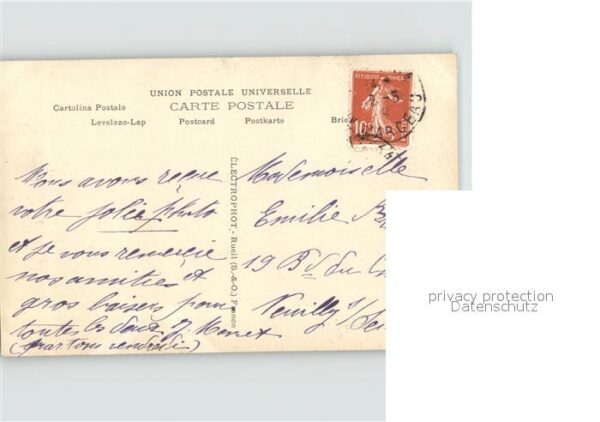 UNION POSTALE UNIVERSELLE
CARTE POSTALE
Cartolina Postale
Levelezo-Lap Postcard Postkarte Brie
REPUBLIQUE FRANÇAISE
10
ELECTROPHOT.- Rueil (S.-&-O.) France
Nous avons reçue
votre jolie photo
et je vous remercie
nos amities et
gros baisers pour
toutes les deux J. Monet
Mademoiselle
Emilie
19 Bd du
Neuilly s/ Sei
privacy protection
Datenschutz